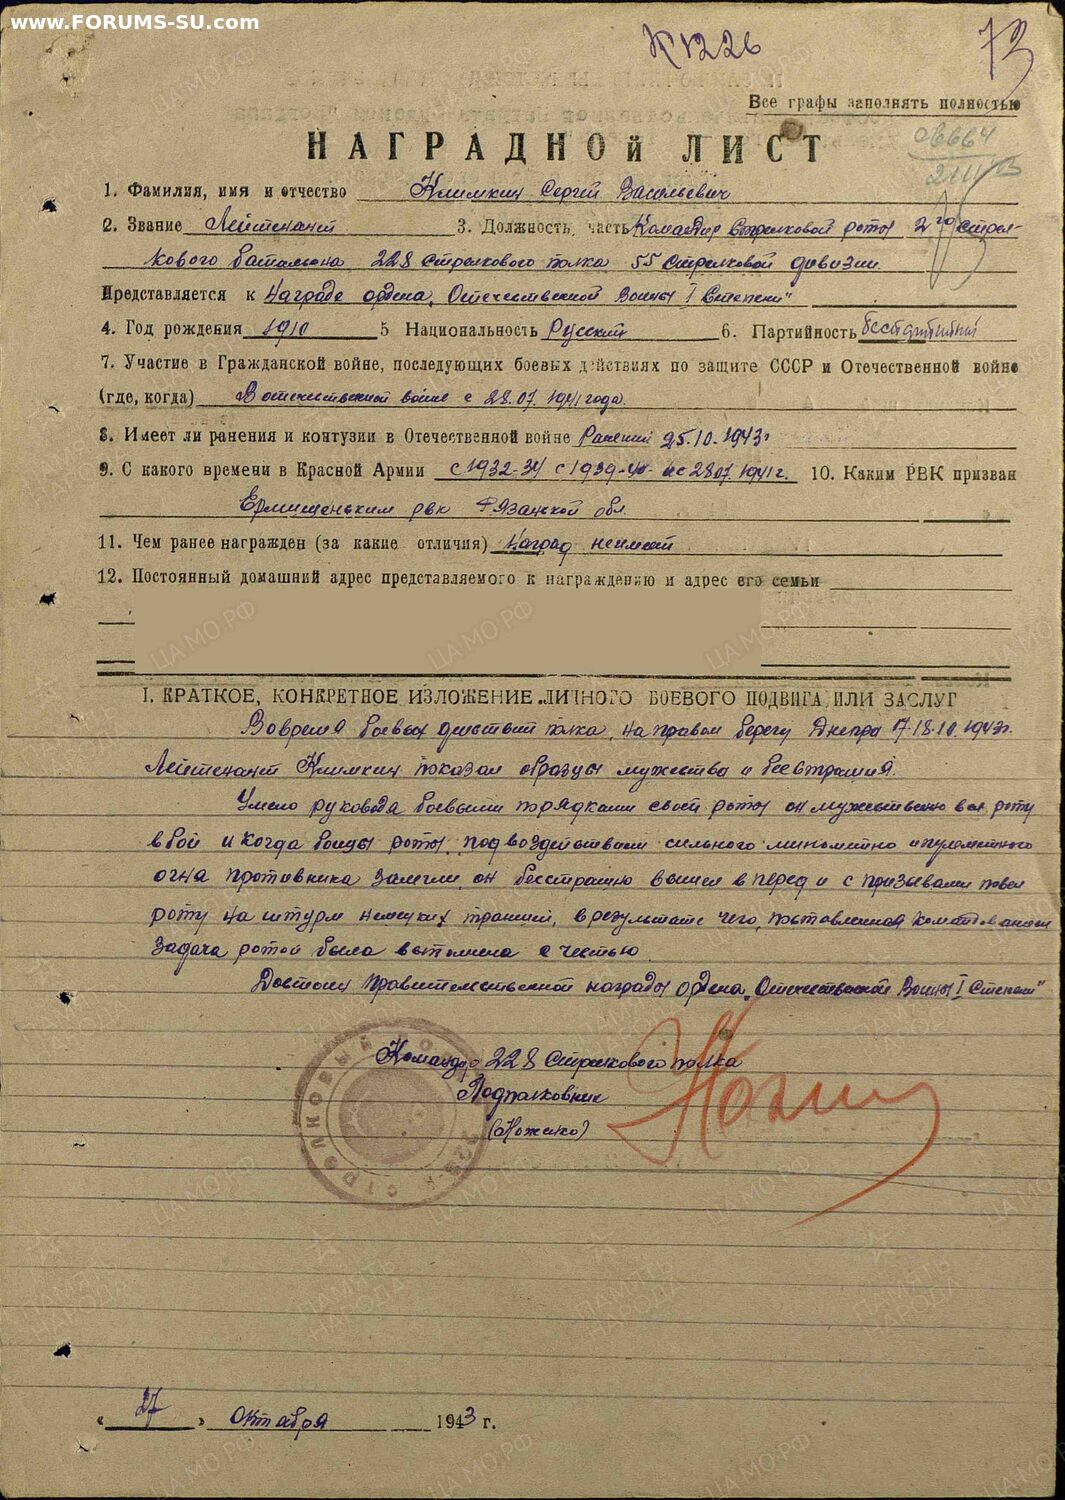 www.FORUMS-SU.com
К 1226
73
Все графы заполнять полностью
НАГРАДНОЙ ЛИСТ
06664
1. Фамилия, имя и отчество Климкин Сергей Васильевич
2. Звание Лейтенант 3. Должность, часть Командир Стрелковой роты 2го стрел-
кового батальона 228 Стрелкового полка 55 Стрелковой дивизии.
Представляется к Награде ордена „Отечественной Войны I Степени"
4. Год рождения 1910 5 Национальность Русский 6. Партийность беспартийный
7. Участие в Гражданской войне, последующих боевых действиях по защите СССР и Отечественной войне
(где, когда) В отечественной войне с 28.07.1941 года.
8. Имеет ли ранения и контузии в Отечественной войне Ранений 25.10.1943г
9. С какого времени в Красной Армии с 1932-34 с 1939-40 и с 28.07.1941г. 10. Каким РВК призван
Ермишенским рвк Рязанской обл.
11. Чем ранее награжден (за какие отличия) Наград неимеет
12. Постоянный домашний адрес представляемого к награждению и адрес его семьи
I. КРАТКОЕ, КОНКРЕТНОЕ ИЗЛОЖЕНИЕ ЛИЧНОГО БОЕВОГО ПОДВИГА ИЛИ ЗАСЛУГ
Вовремя боевых действий полка, на правом берегу Днепра 17-18.10.1943г.
Лейтенант Климкин показал образцы мужества и бесстрашия.
Умело руководя боевыми порядками своей роты он мужественно вел роту
в бой и когда бойцы роты под воздействием сильного минометно и пулеметного
огня противника залегли, он бесстрашно вышел в перед и с призывами повел
роту на штурм немецких траншей, в результате чего, поставленная командованием
задача ротой была выполнена с честью.
Достоин правительственной награды ордена „Отечественной Войны I Степени"
Командир 228 Стрелкового полка
Подполковник
(Ножико)
СТРЕЛКОВЫЙ
„27" октября 1943 г.
ЦА МО РФ
ПАМЯТЬ НАРОДА